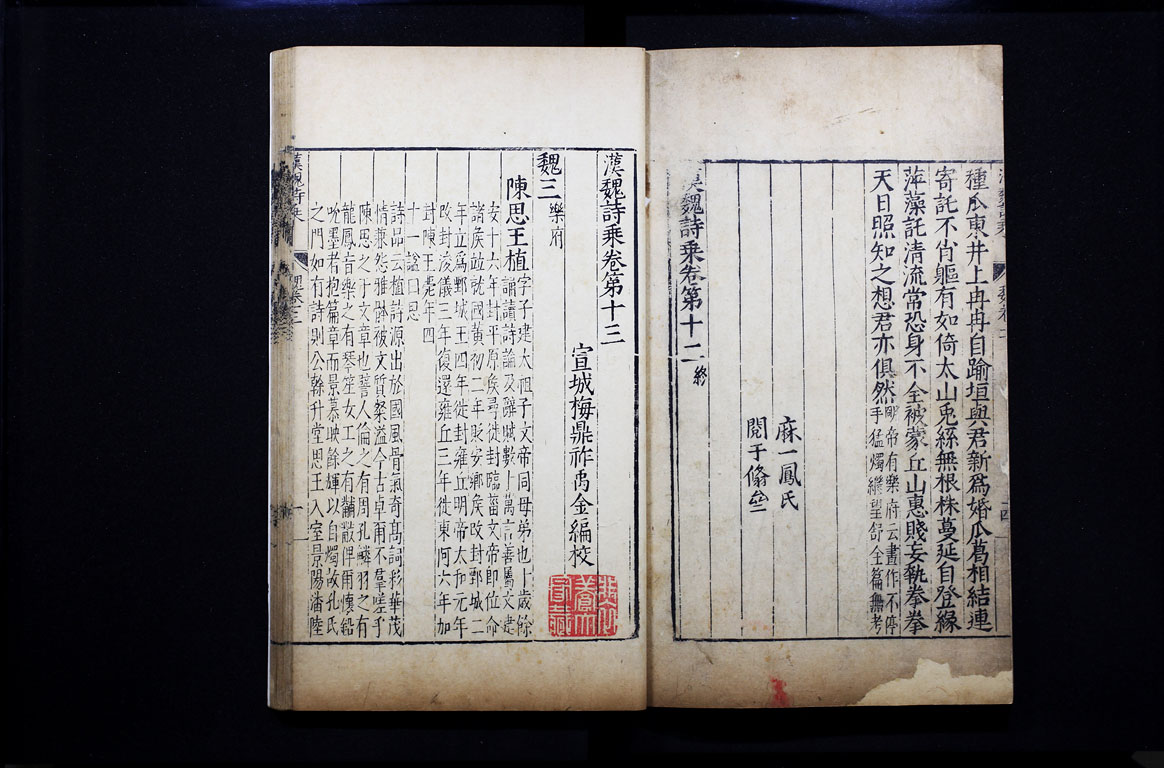 種瓜東井上冉冉自踰垣與君新為婚瓜葛相結連
寄託不肖軀有如倚太山兎絲無根株蔓延自登緣
萍藻託清流常恐身不全被蒙丘山惠賤妾執拳拳
天日照知之想君亦俱然
帝有樂府云畫作不停
手猛燭繼望舒全篇無考
麻一鳳氏
閱于脩壘
漢魏詩乘卷第十二 終
漢魏詩乘卷第十三
宣城梅鼎祚禹金編校
魏三 樂府
陳思王植 字子建太祖子文帝同母弟也十歲餘
誦讀詩論及辭賦數十萬言善屬文建
安十六年封平原侯尋徙封臨菑文帝即位命
諸侯竝就國黃初二年貶安鄉侯改封鄄城二
年立為鄄城王四年徙封雍丘明帝太和元年
改封浚儀三年復還雍丘三年徙東阿六年加
封陳王薨年四
十一謚曰思
詩品云植詩源出於國風骨氣奇高詞彩華茂
情兼怨雅體被文質粲溢今古卓爾不羣嗟乎
陳思之于文章也譬人倫之有周孔鱗羽之有
龍鳳音樂之有琴笙女工之有黼黻俾爾懷鉛
吮墨者抱篇章而景慕映餘輝以自燭故孔氏
之門如有詩則公幹升堂思王入室景陽潘陸